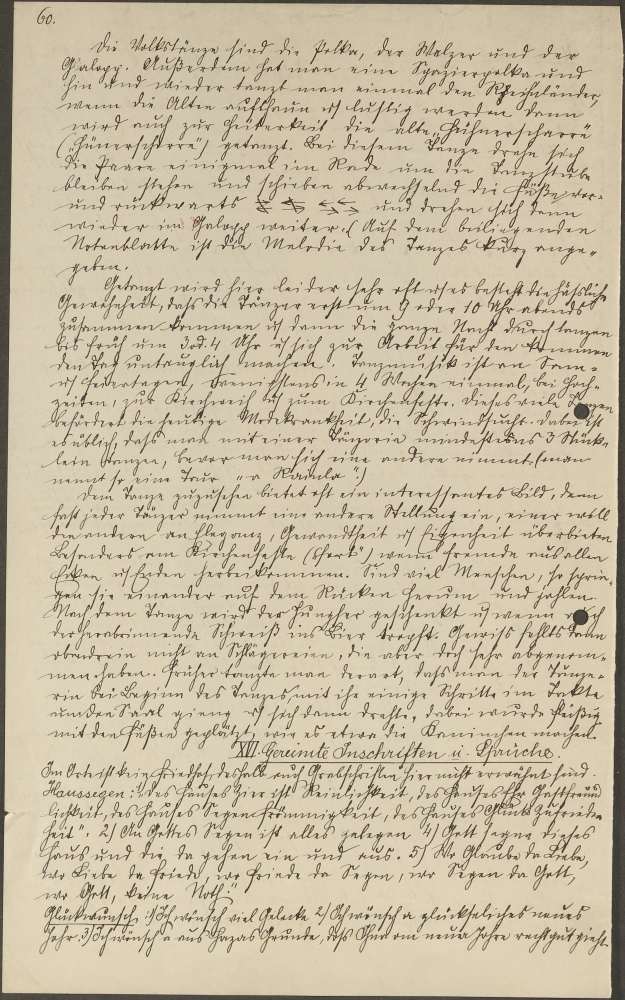 60.
Die Volkstänze sind die Polka, der Walzer und der
Galopp. Außerdem hat man eine Spazierpolka und
hin und wieder tanzt man einmal den Rheinländer,
wenn die Alten aufthaun u lustig werden. Dann
wird auch zur Heiterkeit die alte "Hühnerscharre"
getanzt. Bei diesem Tanze drehn sich
die Paare einigemal im Rade um die Tanzstube
bleiben stehen und schieben abwechselnd die Füße vor-
und rückwärts und drehen sich dann
wieder im Galopp weiter. (Auf dem beiliegenden
Notenblatte ist die Melodie des Tanzes kurz ange-
geben.
Getanzt wird hier leider sehr oft u es besteht die hässliche
Gewohnheit, dass die Tänzer erst um 9 oder 10 Uhr abends
zusammen kommen u dann die ganze Nacht durch tanzen
bis früh um 3 od. 4 Uhr u sich zur Arbeit für den kommen
den Tag untauglich machen. Tanzmusik ist an Sonn-
u Feiertagen, wenigstens in 4 Wochen einmal, bei Hoch-
zeiten, zur Kirchweih u zum Kirchenfeste. Dieses viele Tanzen
befördert die heutige Modekrankheit, die Schwindsucht. Dabei ist
es üblich, dass man mit einer Tänzerin mindestens 3 Stück-
lein tanzen, bevor man sich eine andere nimmt (man
nennt so eine Tour "a Raihla".)
Dem Tanze zuzusehen bietet oft ein interessantes Bild, denn
fast jeder Tänzer nimmt eine andere Stellung ein, einer will
die andern an Eleganz, Gewandtheit u Eigenheit überbieten
Besonders am Kirchenfeste wenn Fremde aus allen
Ecken u Enden herbeikommen. Sind viel Menschen, so sprin-
gen sie einander auf dem Rücken herum und johlen.
Nach dem Tanze wird der geschenkt u wenn auch
der herabrinnende Schweiß ins Bier tropft. Gewiss fehlts dann
obendrein nicht an Schlägereien, die aber doch sehr abgenom-
men haben. Früher tanzte man derart, dass man der Tänze-
rin bei Beginn des Tanzes mit ihr einige Schritte im Takte
um den Saal gieng u sich dann drehte, dabei wurde fleißig
mit den Füßen geplätzt, wie es etwa die Kaninchen machen.
XII. Gereimte Inschriften u. Sprüche.
Im Orte ist kein Friedhof, deshalb auch Grabschriften hier nicht erwähnt sind.
Haussegen: des Hauses Zier ist Reinlichkeit, des Hauses Ehr Gastfreund
lichkeit, des Hauses Segen Frömmigkeit, des Hauses Glück Zufrieden
heit". 2) An Gottes Segen ist alles gelegen 4) Gott segne dieses
Haus und die da gehen ein und aus. 5) Wo Glaube da Liebe,
wo Liebe da Friede, wo Friede da Segen, wo Segen da Gott,
wo Gott, keine Noth."
Glückwunsch: 1) Ich wünsch viel Gelecke 2) Ich wünsch a glückseliches neues
Johr. 3) Ich wünsch a aus Hazas Grunde, doss Ihna om neua Johre racht gut gieht.